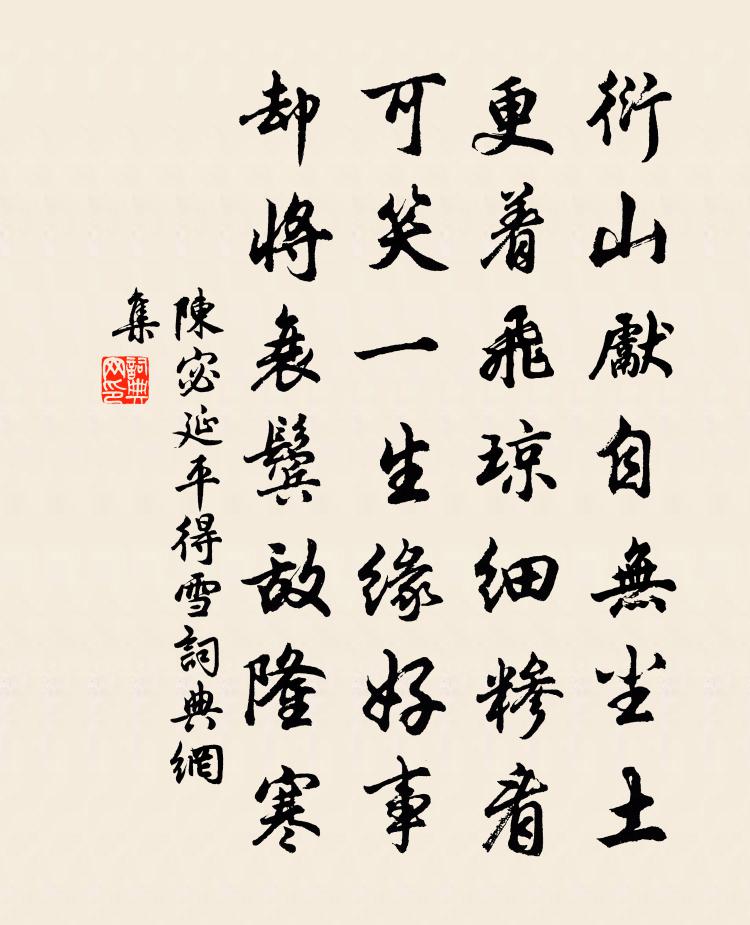 衍山獻自無尘土
更着飛琼細糁看
可笑一生缘好事
却将衰鬓敌隆寒
陳宓延平得雪詞典網
集
詞典
网印